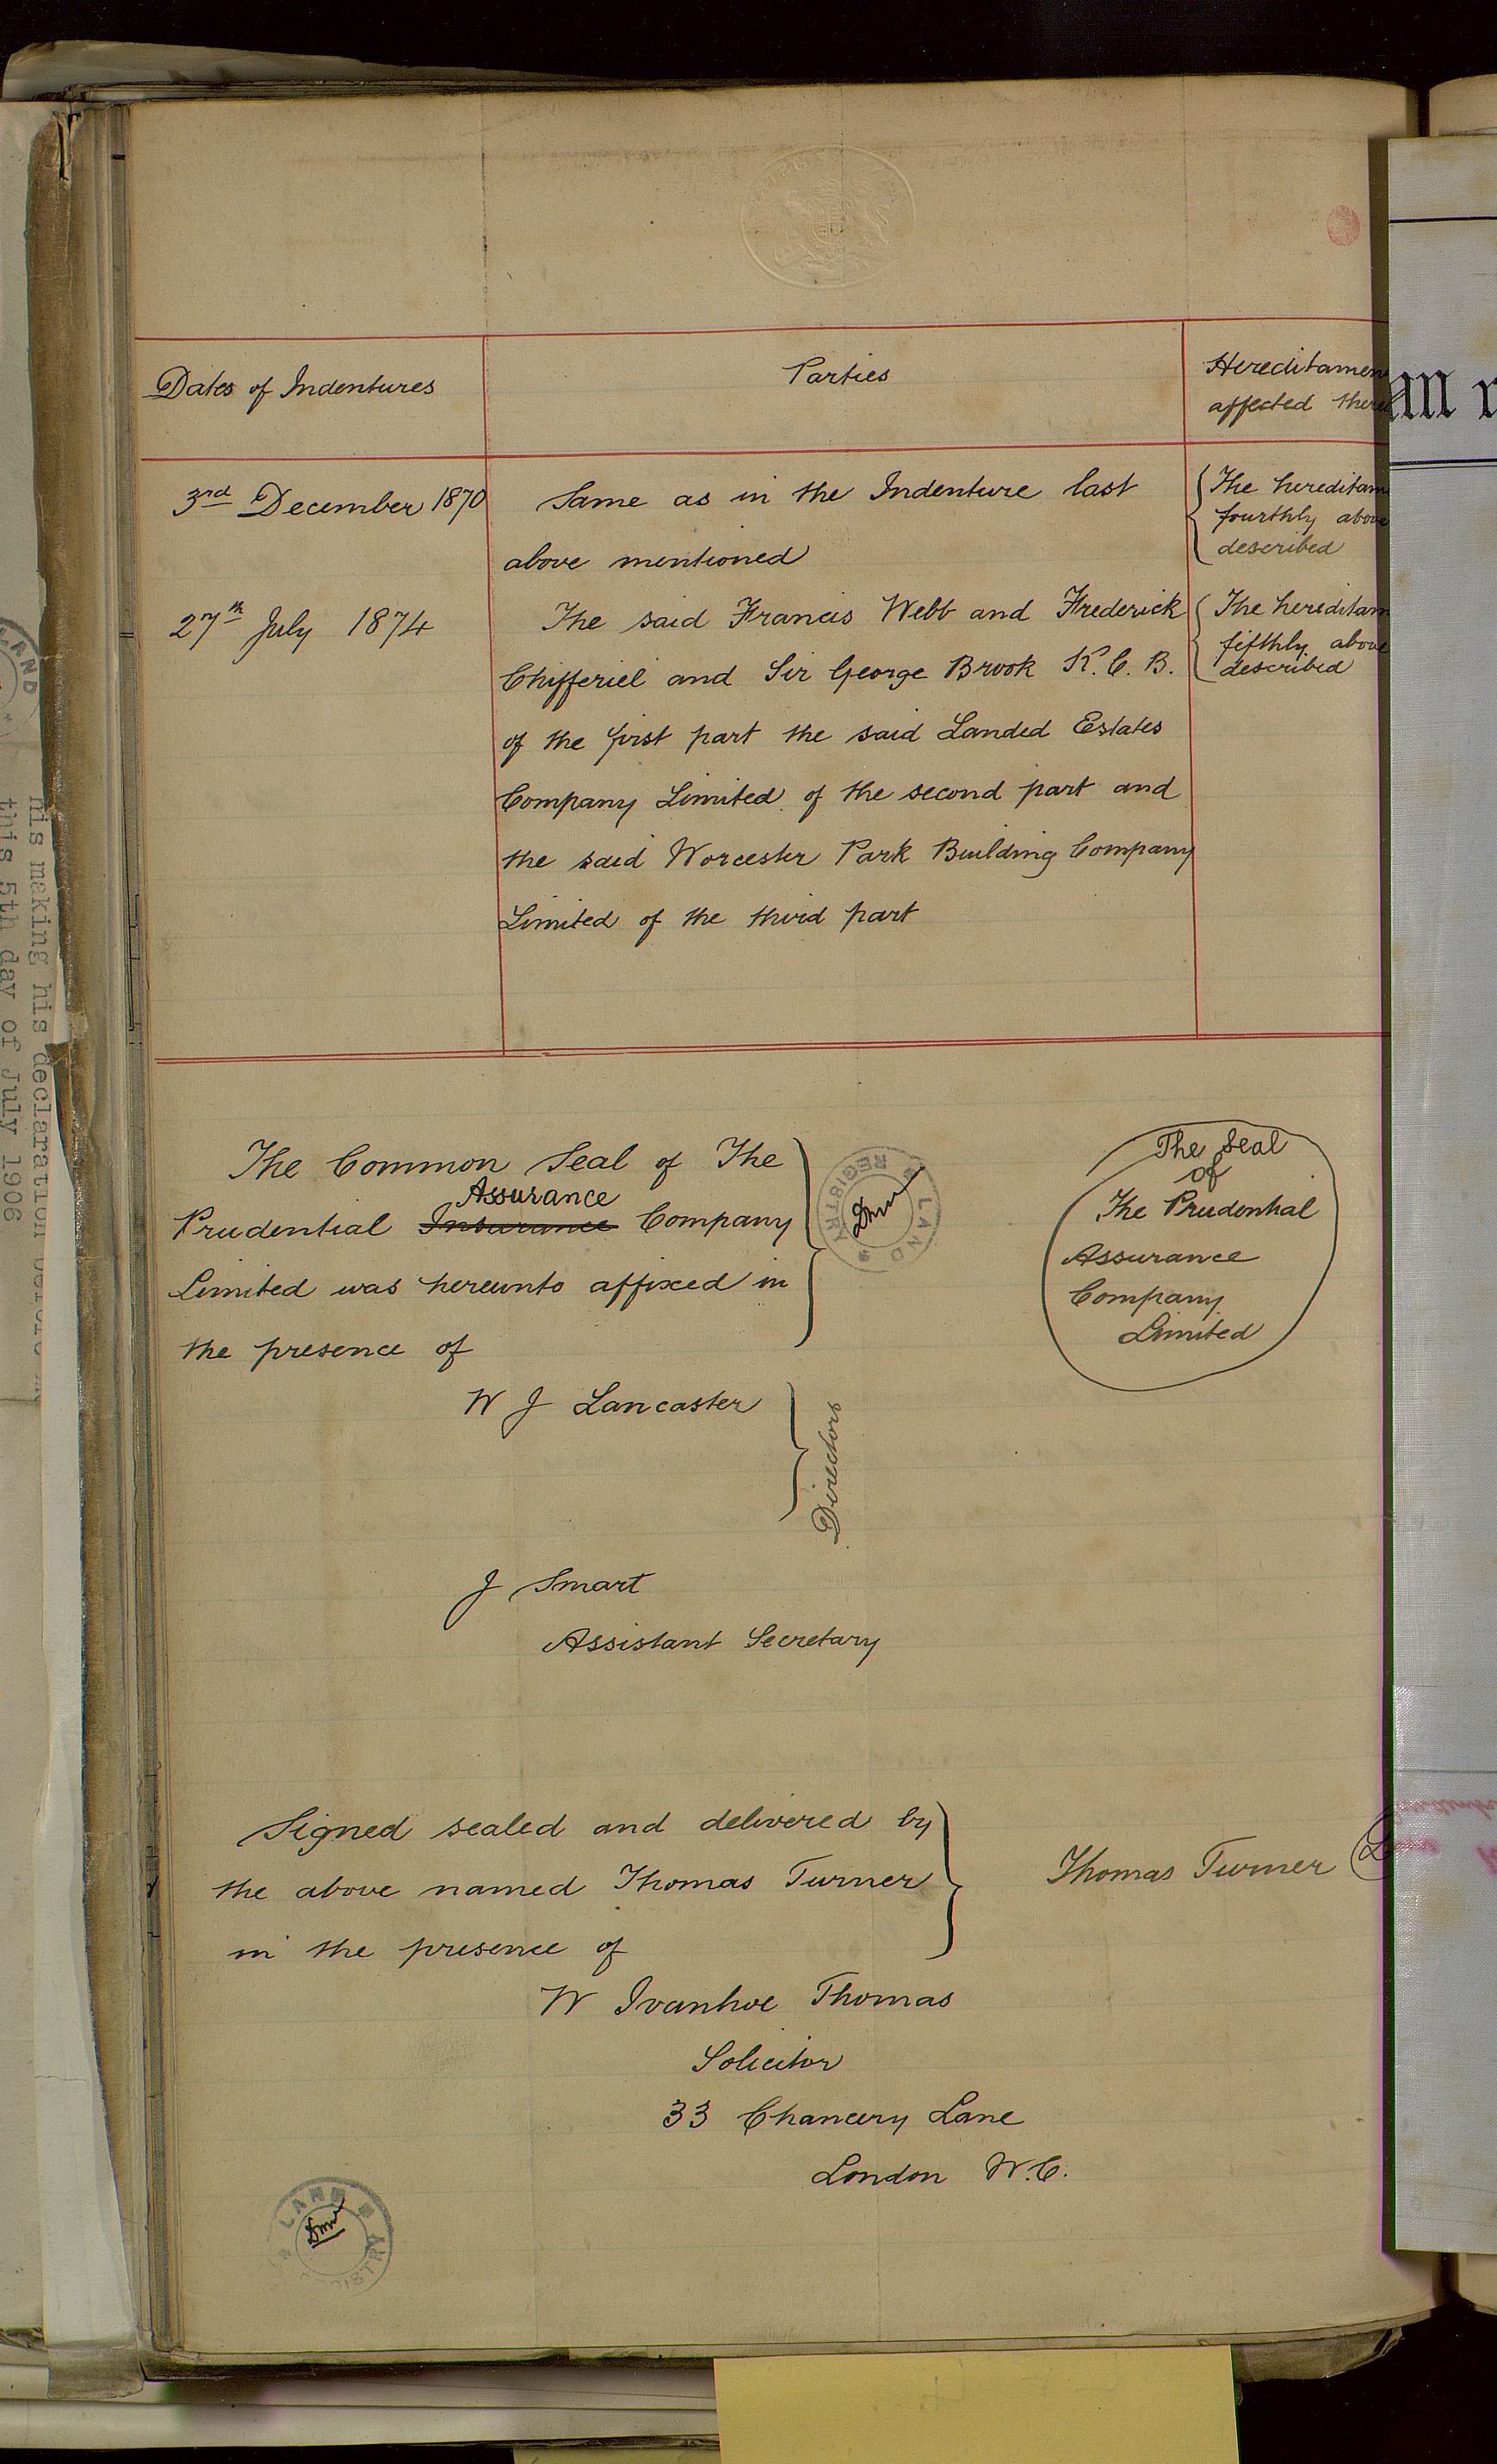 Dates of Indentures
Parties
Hereditamen
affected there
3rd December 1870
Same as in the Indenture last
above mentioned
The hereditam
fourthly above
described
27th July 1874
The said Francis Webb and Frederick
Chifferiel and Sir George Brook K.C.B.
of the first part the said Landed Estates
Company Limited of the second part and
the said Worcester Park Building Company
Limited of the third part
The hereditam
fifthly above
described
The Common Seal of The
Assurance
Prudential Insurance Company
Limited was hereunto affixed in
the presence of
W J Lancaster
Directors
J Smart
Assistant Secretary
LAND REGISTRY
The Seal
of
The Prudential
Assurance
Company
Limited
Signed sealed and delivered by
the above named Thomas Turner
in the presence of
Thomas Turner
W Ivanhoe Thomas
Solicitor
33 Chancery Lane
London W.C.
LAND
his making his declaration before
this 5th day of July 1906
LAND